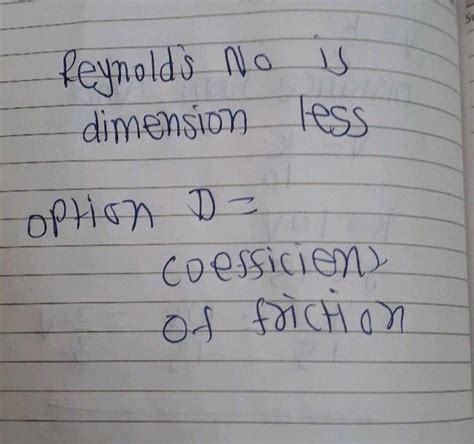 Reynold's No is
dimension less
option D =
coefficient
of friction